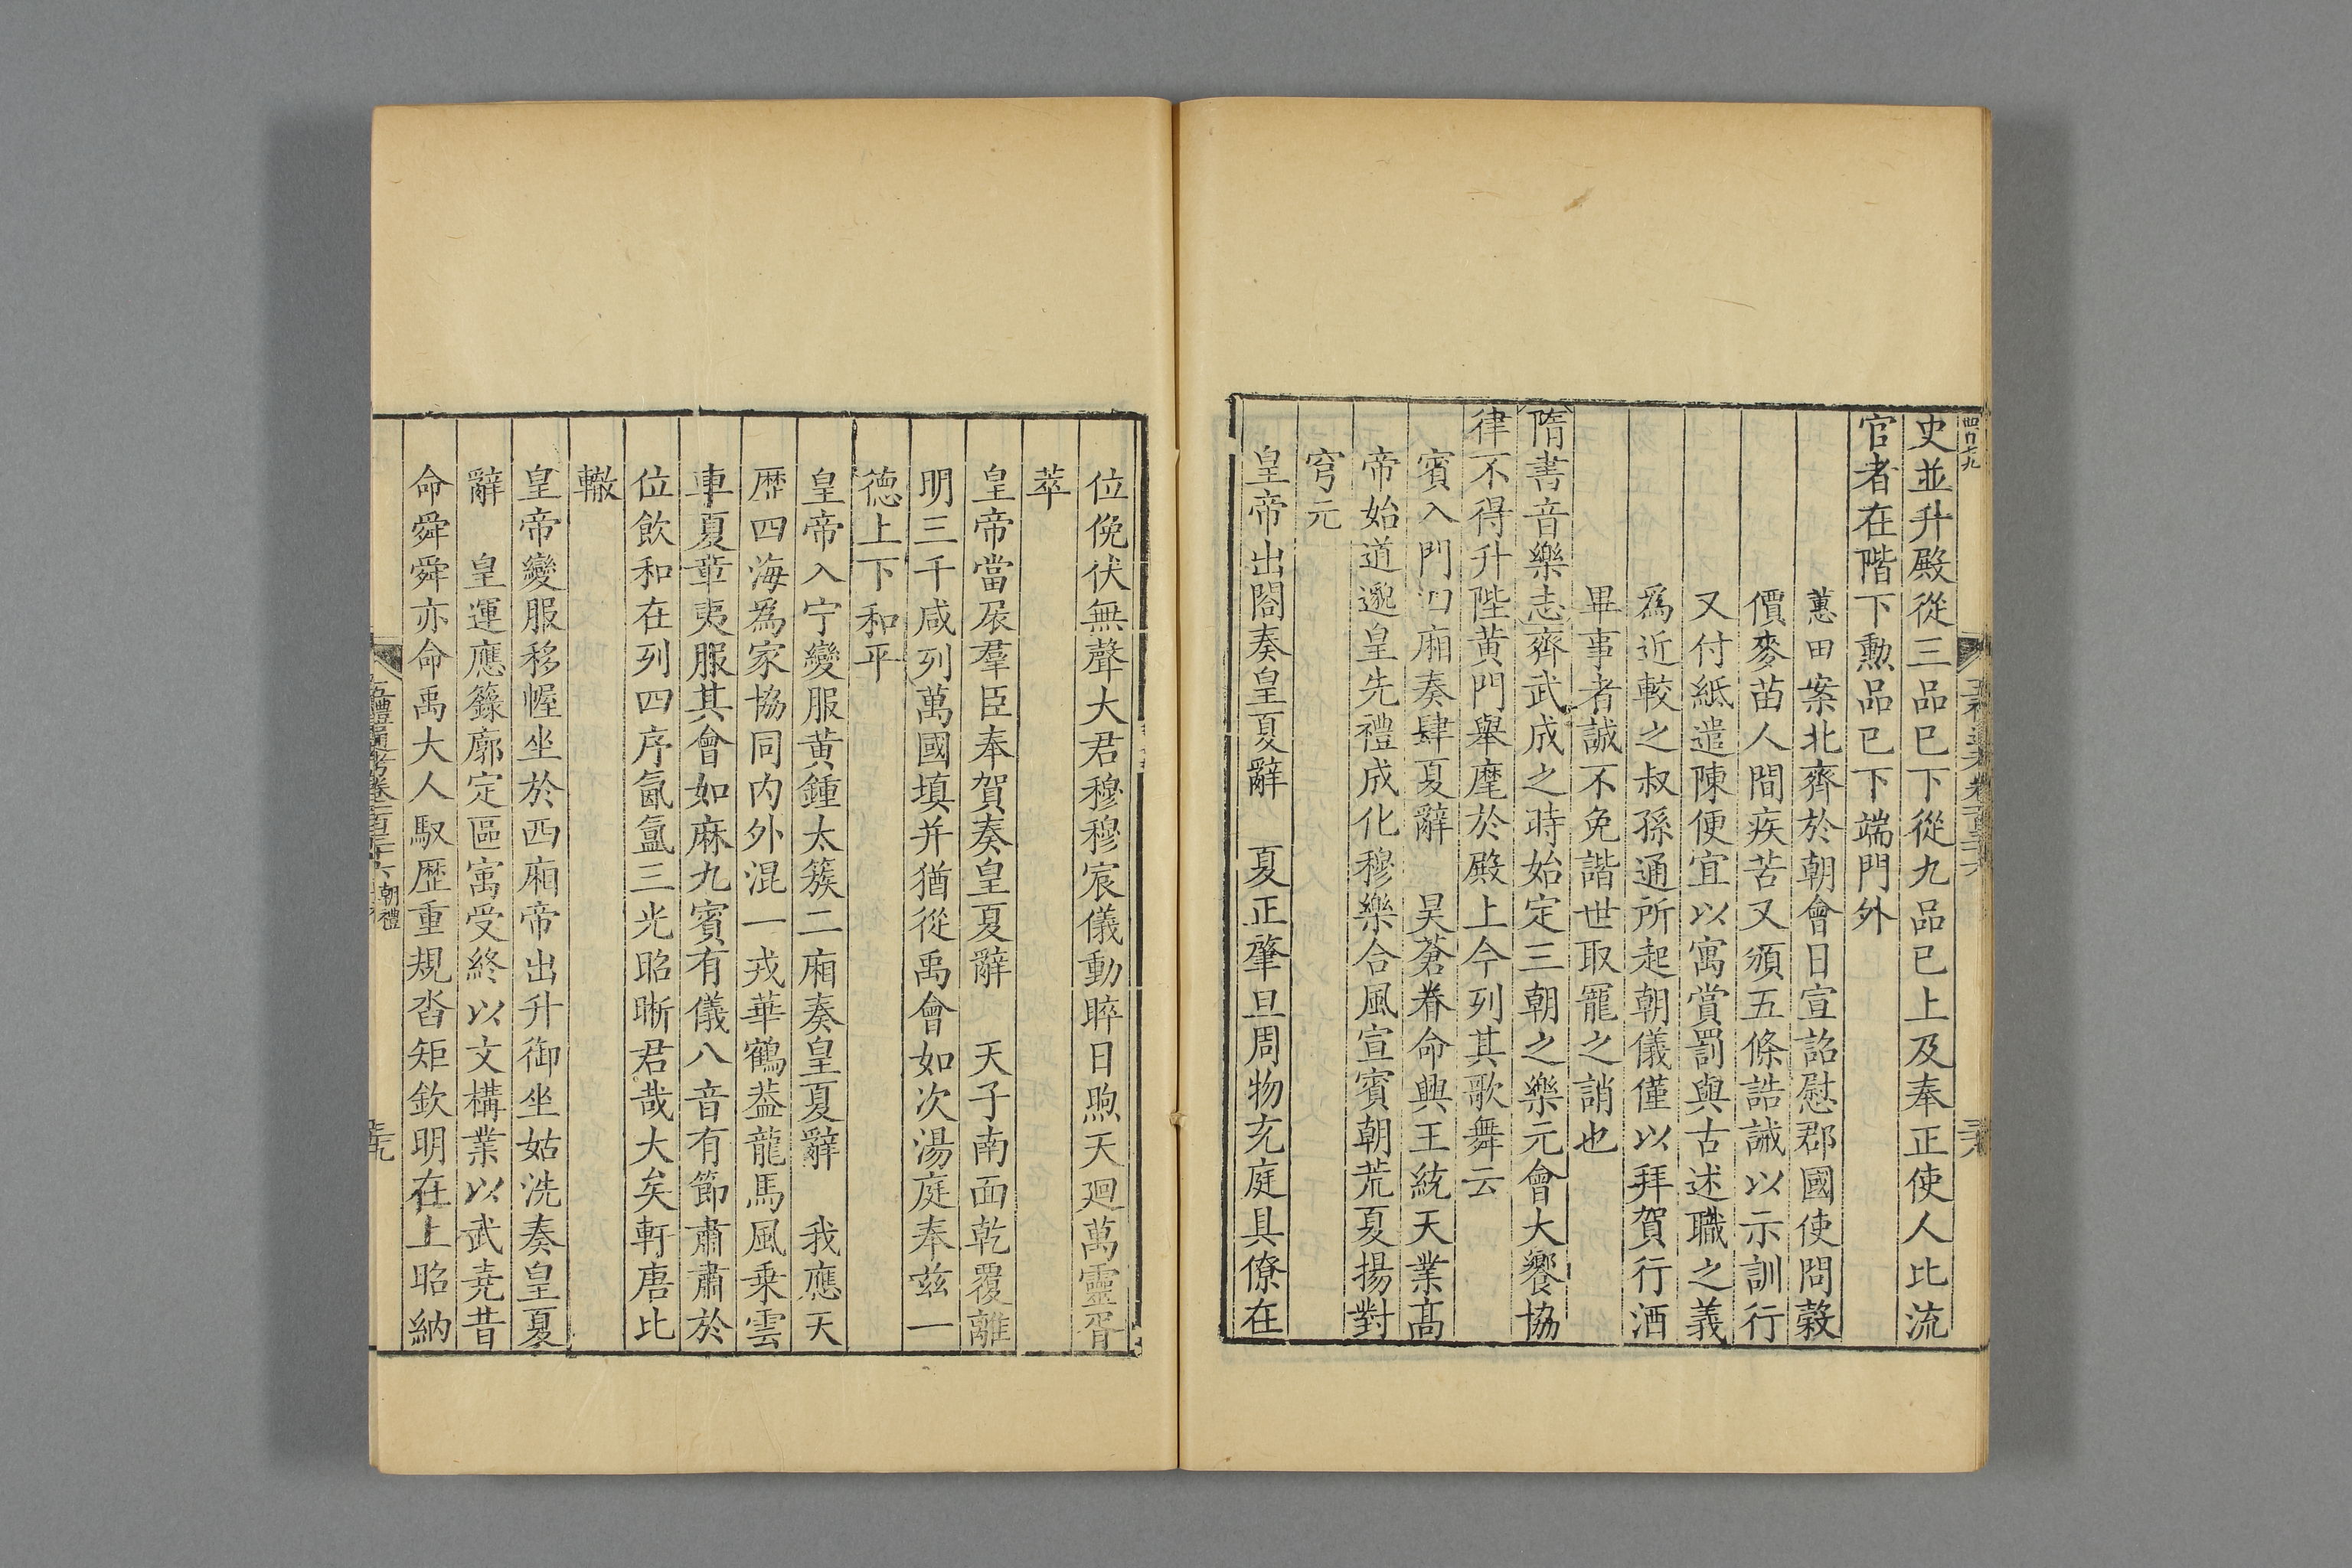 史並升殿從三品已下從九品已上及奉正使人比流
官者在階下勲品已下端門外
蕙田案北齊於朝會日宣詔慰郡國使問穀
價麥苗人間疾苦又頒五條誥誡以示訓行
又付紙遣陳便宜以寓賞罰與古述職之義
爲近較之叔孫通所起朝儀僅以拜賀行酒
畢事者誠不免諧世取寵之誚也
隋書音樂志齊武成之時始定三朝之樂元會大饗協
律不得升陛黄門舉麾於殿上今列其歌舞云
賓入門四廂奏肆夏辭　昊蒼眷命興王統天業髙
帝始道邈皇先禮成化穆樂合風宣賓朝荒夏揚對
穹元
皇帝出閤奏皇夏辭　夏正肇旦周物充庭具僚在
位俛伏無聲大君穆穆宸儀動睟日煦天廻萬靈胥
萃
皇帝當扆羣臣奉賀奏皇夏辭　天子南面乾覆離
明三千咸列萬國填并猶從禹會如次湯庭奉兹一
徳上下和平
皇帝入宁變服黄鍾太簇二廂奏皇夏辭　我應天
歴四海爲家協同内外混一戎華鶴葢龍馬風乗雲
車夏章夷服其會如麻九賓有儀八音有節肅肅於
位飲和在列四序氤氲三光昭晰君哉大矣軒唐比
轍
皇帝變服移幄坐於西廂帝出升御坐姑洗奏皇夏
辭　皇運應籙廓定區寓受終以文構業以武堯昔
命舜舜亦命禹大人馭歴重規沓矩欽明在上昭納
五禮通考卷一百三十六 朝禮